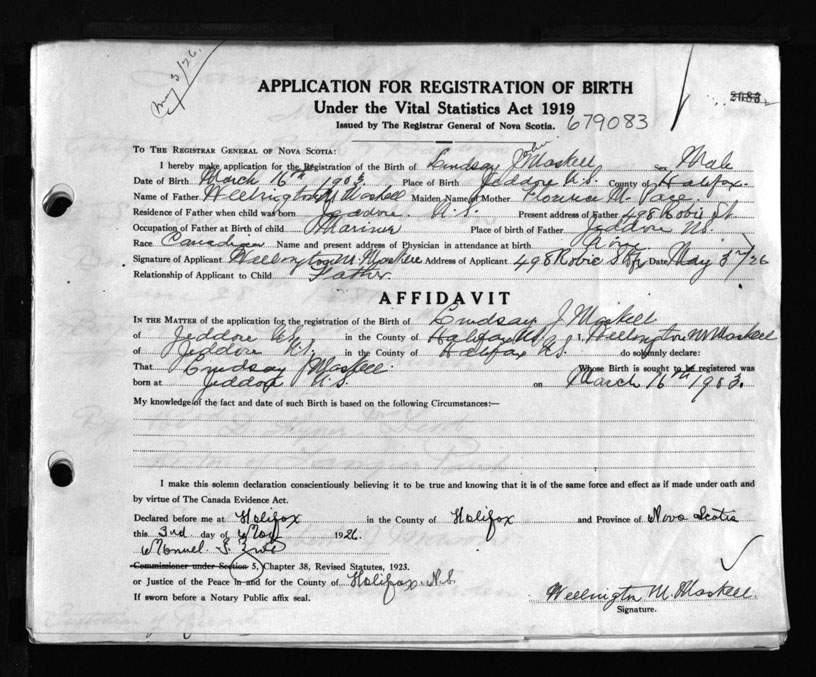 May 3/26.
APPLICATION FOR REGISTRATION OF BIRTH
Under the Vital Statistics Act 1919
2083
Issued by The Registrar General of Nova Scotia. 679083
TO THE REGISTRAR GENERAL OF NOVA SCOTIA:
I hereby make application for the Registration of the Birth of Lindsay J Maskell Sex Male
Date of Birth March 16th 1903. Place of Birth Jeddore N.S. County of Halifax.
Name of Father Wellington M Maskell Maiden Name of Mother Florence M.
Residence of Father when child was born Jeddore. N.S. Present address of Father 498 Robie St
Occupation of Father at Birth of child Mariner Place of birth of Father Jeddore NS.
Race Canadian Name and present address of Physician in attendance at birth
Signature of Applicant Wellington M. Maskell Address of Applicant 498 Robie St Hfx Date May 3rd/26
Relationship of Applicant to Child Father.
AFFIDAVIT
IN THE MATTER of the application for the registration of the Birth of Lindsay J Maskell
of Jeddore N.S. in the County of Halifax N.S. I, Wellington M Maskell
of Jeddore N.S. in the County of Halifax N.S. do solemnly declare:
That Lindsay J Maskell. Whose Birth is sought to be registered was
born at Jeddore N.S. on March 16th 1903.
My knowledge of the fact and date of such Birth is based on the following Circumstances:—
I make this solemn declaration conscientiously believing it to be true and knowing that it is of the same force and effect as if made under oath and
by virtue of The Canada Evidence Act.
Declared before me at Halifax in the County of Halifax and Province of Nova Scotia
this 3rd day of May 1926.
S.
Commissioner under Section 5, Chapter 38, Revised Statutes, 1923.
or Justice of the Peace in and for the County of Halifax. N.S.
If sworn before a Notary Public affix seal.
Wellington M. Maskell.
Signature.